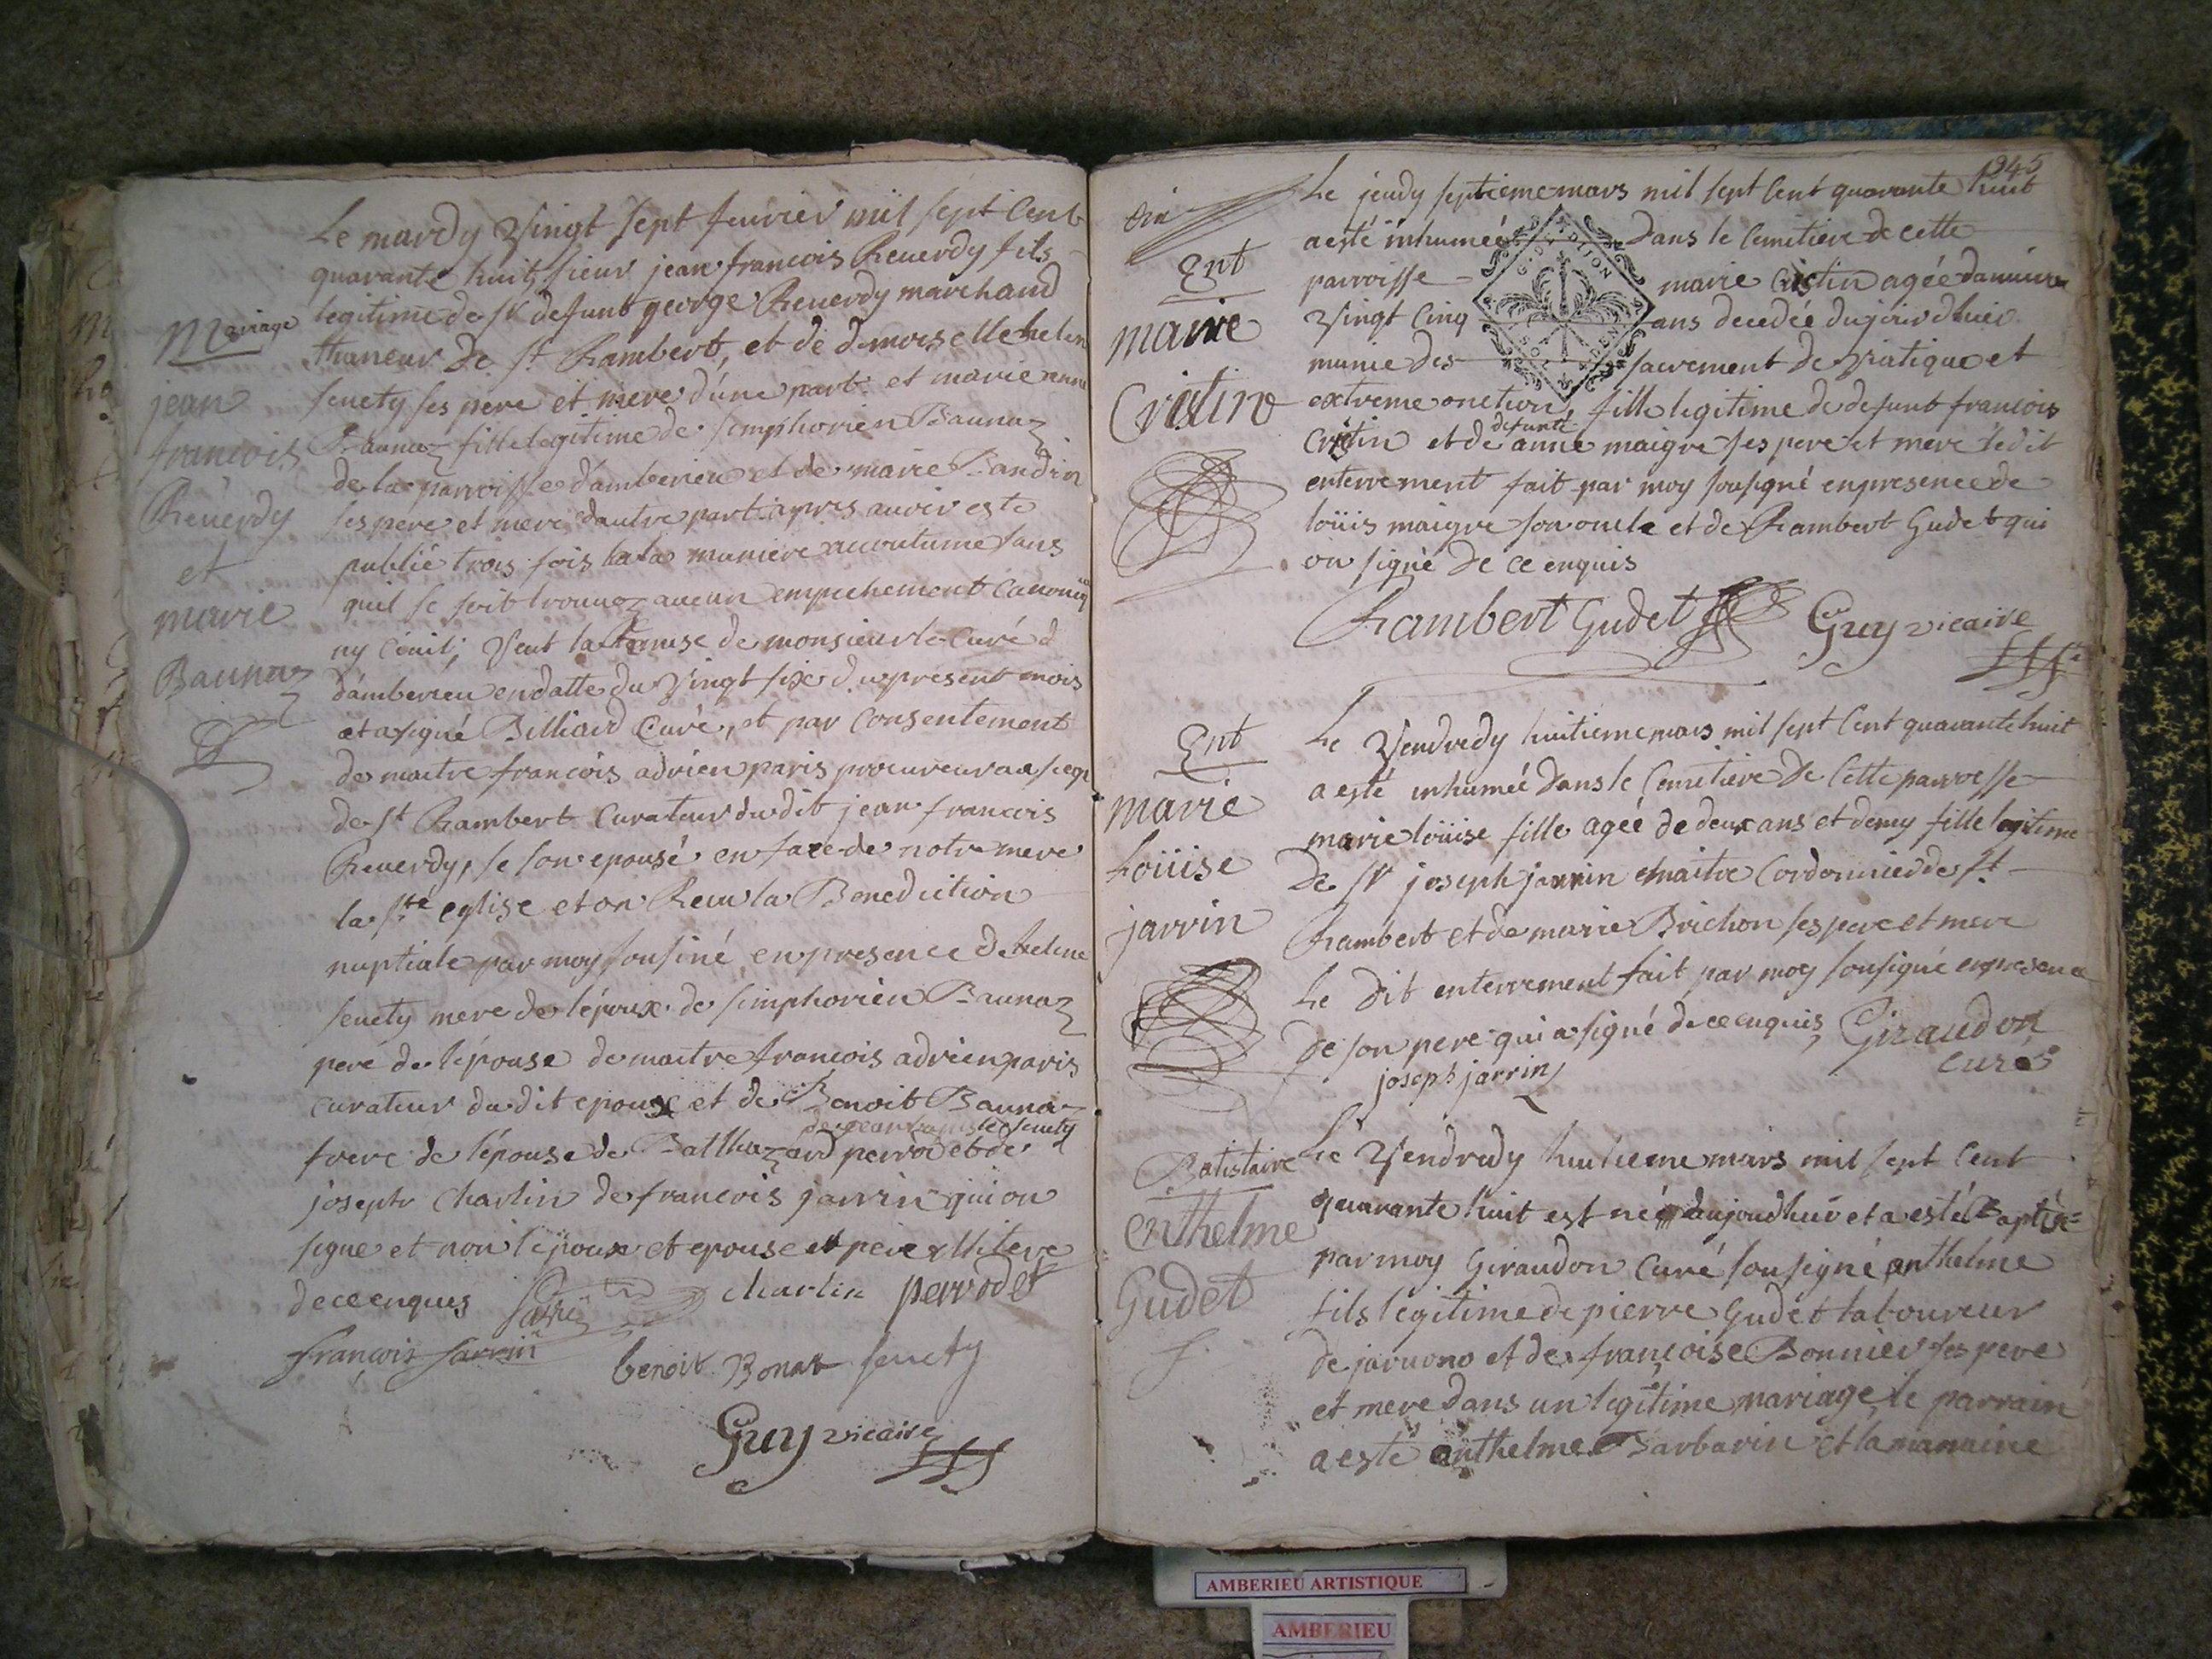 Le mardy vingt sept fevrier mil sept cent
quarante huit sieur jean francois Reverdy fils
Mariage
legitime de sr defunt george Reverdy marchand
thaneur de st Rambert, et de demoiselle helene
jean
francois
Reverdy
et
marie
Baunaz
senety ses pere et mere d'une part et marie anne
Baunaz fille legitime de simphorien Baunaz
de la parroisse d'amberieu et de marie Bandin
ses pere et mere d'autre part apres avoir esté
publié trois fois a la maniere accoutumé sans
quil se soit trouvez aucun empechement canonique
ny civil; veut la Remise de monsieur le curé d
d'amberieu en datte du vingt sixe du present mois
et a signé Billiard curé, et par consentement
de maitre francois adrien paris procureur au siege
de st Rambert curateur dudit jean francois
Reverdy, se son epousé en face de notre mere
la ste eglise et on Recu la Benediction
nuptiale par moy sousiné en presence de helene
senety mere de l'époux de simphorien Baunaz
pere de l'épouse de maitre francois adrien paris
curateur du dit epoux et de Benoit Baunaz
frere de l'épouse de Balthazard perrodet de
joseph charlin de francois jarrin qui on
signe et non l'époux et epouse et pere
de ce enques
charlin perrodet
françois Jarrin
benoit Bonat senety
Guy vicaire
345
Ent
marie
Cristin
Le jeudy septieme mars mil sept cent quarante huit
a esté inhumée dans le cemitiere de cette
parroisse marie Cristin agée d'anviron
vingt cinq ans decedée du jour d'huier
munie des sacrement de viatique et
extreme onction, fille legitime de defunt francois
Cristin et de defunte anne maigre ses pere et mere ledit
enterrement fait par moy sousigné en presence de
loüis maigre son oncle et de Rambert Gudet qui
on signé de ce enquis
Rambert Gudet Guy vicaire
Ent
marie
Loüise
jarrin
Le vendredy huitieme mars mil sept cent quarante huit
a esté inhumée dans le cemitiere de cette parroisse
marie loüise fille agée de deux ans et demy fille legitime
de sr joseph jarrin maitre cordonnied de st
Rambert et de marie Brichon ses pere et mere
Le dit enterrement fait par moy sousigné en presence
de son pere qui a signé de ce enquis Giraudon
joseph jarrin curé
Batistaire
enthelme
Gudet
f
Le vendredy huitieme mars mil sept cent
quarante huit est né aujoudhui et a esté Baptisé
par moy Giraudon curé sousigné anthelme
fils légitime de pierre Gudet laboureur
de jarvono et de françoise Bonnier ses pere
et mere dans un legitime mariage, le parrain
a esté anthelme Barbarin et la marraine
G. DE DIJON
AMBERIEU ARTISTIQUE
AMBERIEU